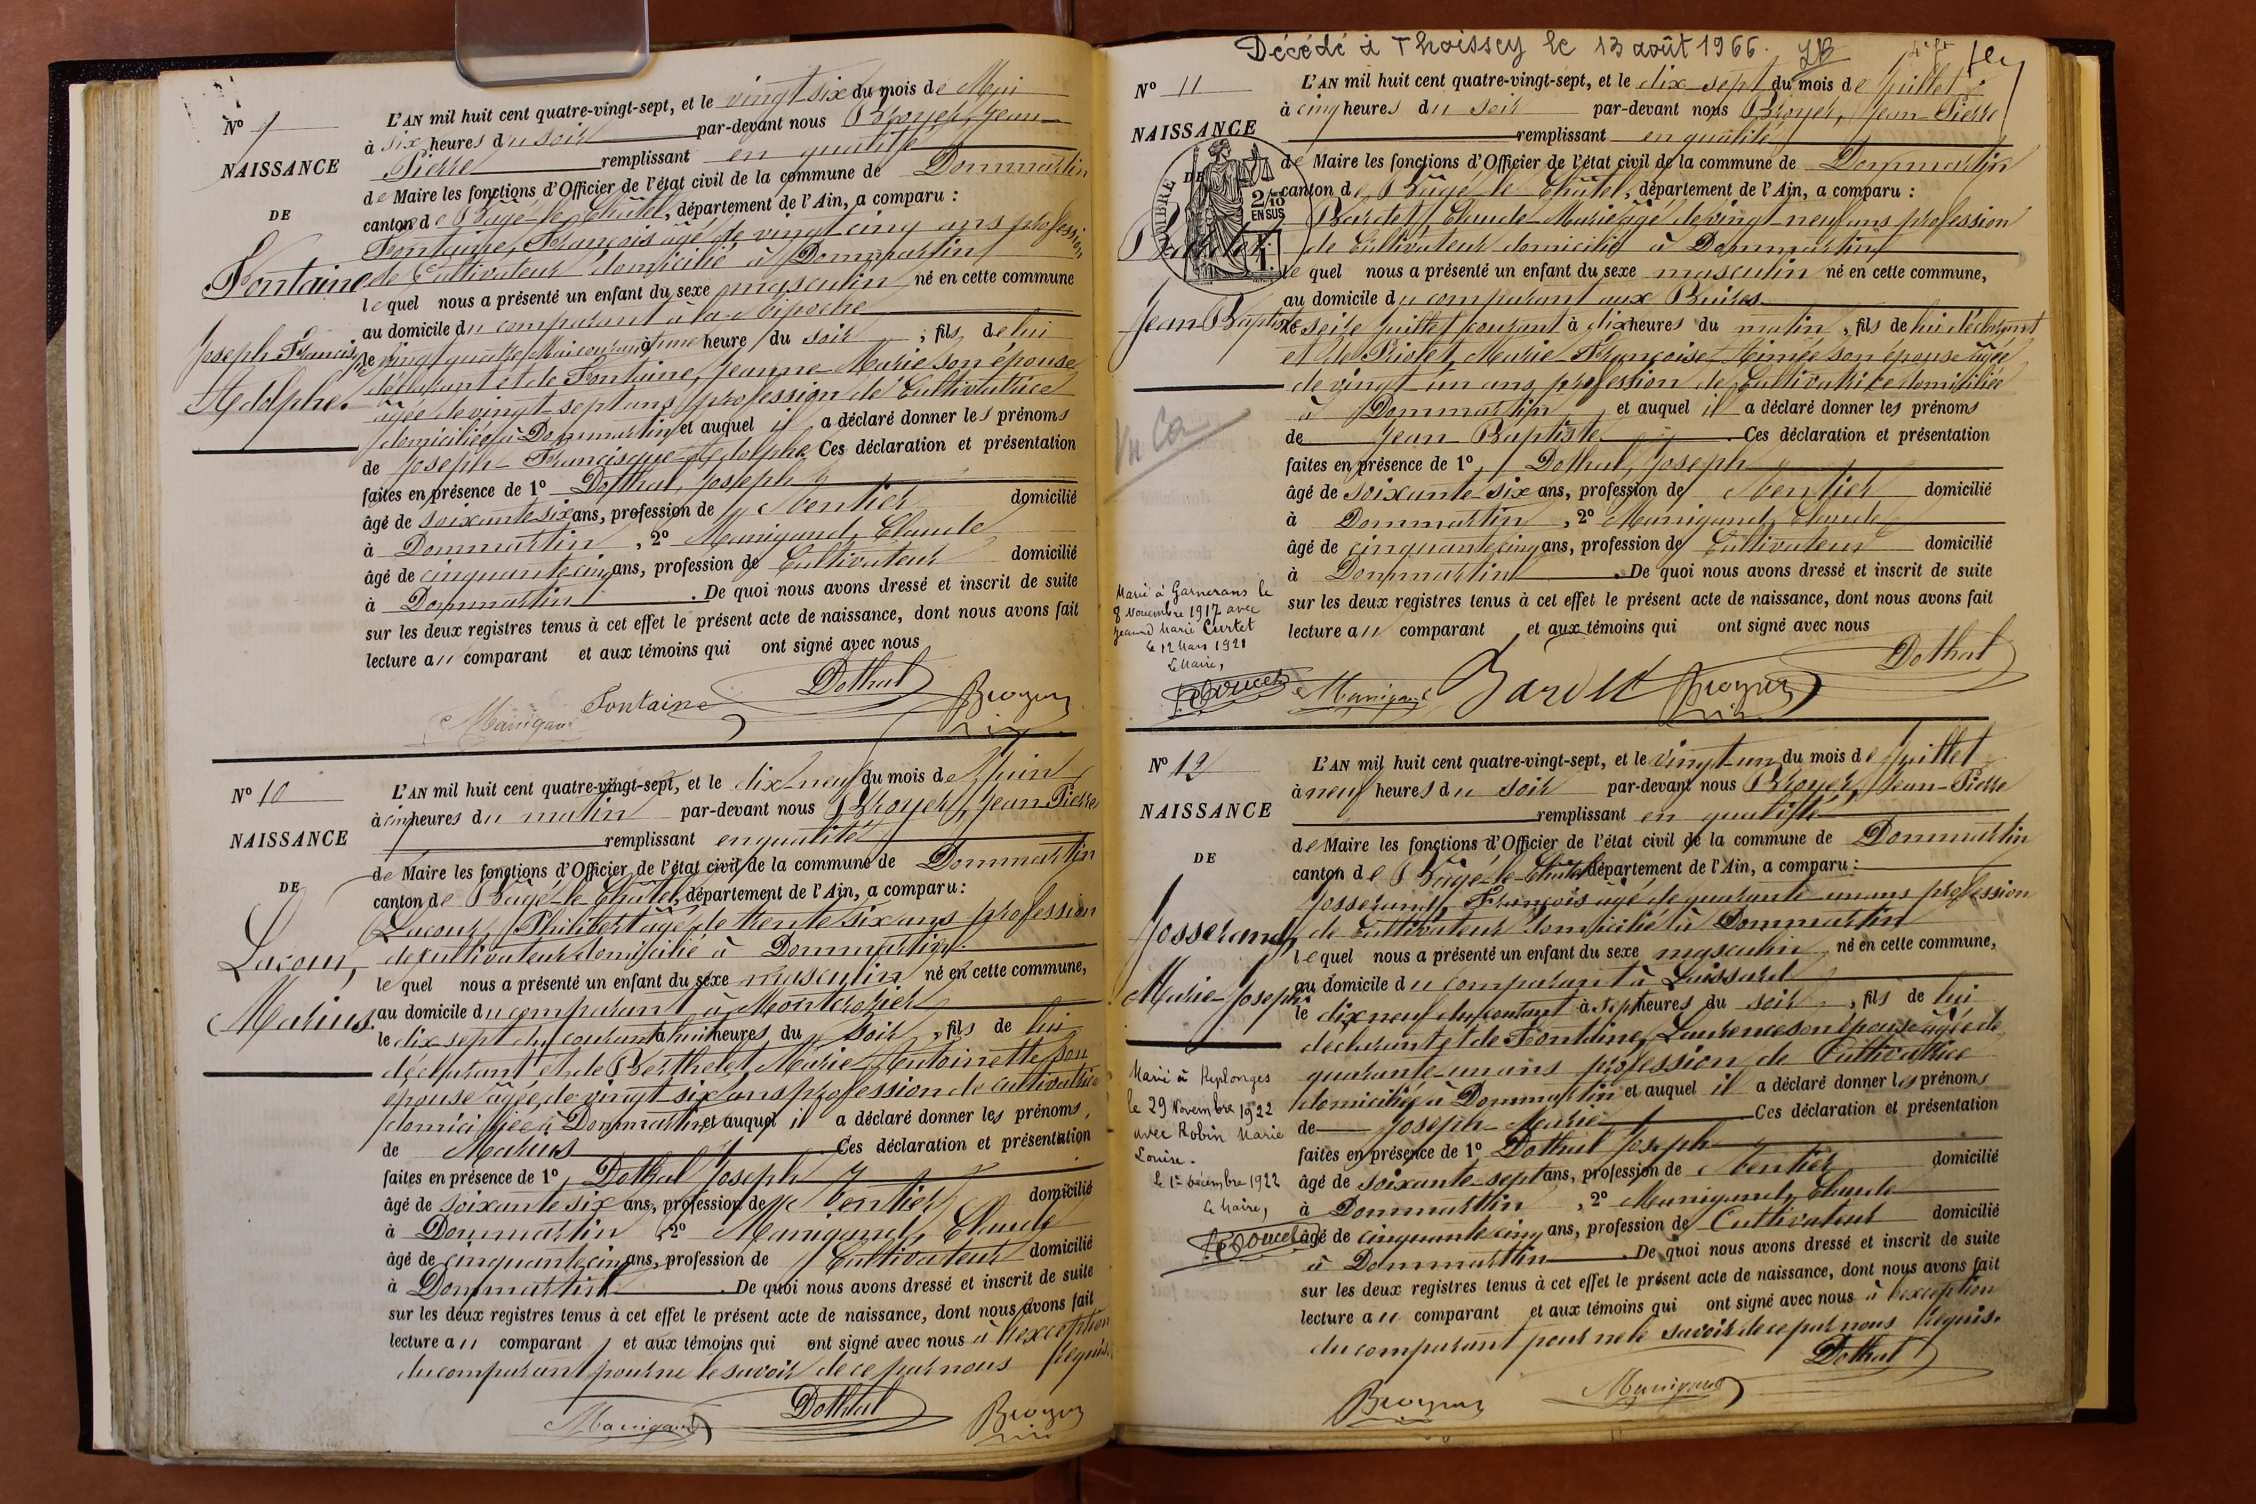 N° 9
NAISSANCE
DE
Fontaine
Joseph Francisque
Adolphe.
L'AN mil huit cent quatre-vingt-sept, et le vingt six du mois de Mai
à six heures du soir par-devant nous Broyer, Jean-
Pierre remplissant en qualité
de Maire les fonctions d'Officier de l'état civil de la commune de Dommartin
canton de Bâgé-le-Châtel, département de l'Ain, a comparu :
Fontaine, François âgé de vingt cinq ans profession
de Cultivateur domicilié à Dommartin
lequel nous a présenté un enfant du sexe masculin né en cette commune
au domicile du comparant à la
le vingt quatre Mai courant à une heure du soir, fils de lui
déclarant et de Fontaine, Jeanne-Marie son épouse
âgée de vingt-sept ans profession de Cultivatrice
domiciliée à Dommartin et auquel il a déclaré donner les prénoms
de Joseph-Francisque-Adolphe. Ces déclaration et présentation
faites en présence de 1° Dothal, Joseph
âgé de soixante six ans, profession de Rentier domicilié
à Dommartin, 2° Manigand, Claude
âgé de cinquante-cinq ans, profession de Cultivateur domicilié
à Dommartin. De quoi nous avons dressé et inscrit de suite
sur les deux registres tenus à cet effet le présent acte de naissance, dont nous avons fait
lecture au comparant et aux témoins qui ont signé avec nous
Manigand Fontaine Dothal Broyer
N° 10
NAISSANCE
DE
Lacour,
Marius.
L'AN mil huit cent quatre-vingt-sept, et le dix-neuf du mois de Juin
à cinq heures du matin par-devant nous Broyer, Jean Pierre
remplissant en qualité
de Maire les fonctions d'Officier de l'état civil de la commune de Dommartin
canton de Bâgé-le-Châtel, département de l'Ain, a comparu :
Lacour, Philibert âgé de trente six ans profession
de cultivateur domicilié à Dommartin
lequel nous a présenté un enfant du sexe masculin né en cette commune,
au domicile du comparant à Montcrozier
le dix-sept du courant à huit heures du soir, fils de lui
déclarant et de Berthelet, Marie-Antoinette son
épouse âgée de vingt-six ans profession de cultivatrice
domiciliée à Dommartin et auquel il a déclaré donner les prénoms,
de Marius Ces déclaration et présentation
faites en présence de 1° Dothal Joseph
âgé de soixante six ans, profession de Rentier domicilié
à Dommartin 2° Manigand, Claude
âgé de cinquante cinq ans, profession de Cultivateur domicilié
à Dommartin. De quoi nous avons dressé et inscrit de suite
sur les deux registres tenus à cet effet le présent acte de naissance, dont nous avons fait
lecture au comparant et aux témoins qui ont signé avec nous à l'exception
du comparant pour ne le savoir de ce par nous requis.
Manigand Dothal Broyer
Décédé à Thoissey le 13 août 1966.
N° 11
NAISSANCE
DE
TIMBRE
2/10
EN SUS
Bardet,
Jean Baptiste
Vu
Marié à Garnerans le
8 Novembre 1917 avec
Jeanne Marie Curtet
le 12 Mars 1921
Le Maire,
L'AN mil huit cent quatre-vingt-sept, et le dix-sept du mois de Juillet
à cinq heures du soir par-devant nous Broyer, Jean-Pierre
remplissant en qualité
de Maire les fonctions d'Officier de l'état civil de la commune de Dommartin
canton de Bâgé-le-Châtel, département de l'Ain, a comparu :
Bardet, Claude-Marie âgé de vingt-neuf ans profession
de Cultivateur domicilié à Dommartin
lequel nous a présenté un enfant du sexe masculin né en cette commune,
au domicile du comparant aux Buires
le seize juillet courant à dix heures du matin, fils de lui déclarant
et de Piolet, Marie-Françoise-Aimée son épouse âgée
de vingt-un ans profession de Cultivatrice domiciliée
à Dommartin, et auquel il a déclaré donner les prénoms
de Jean Baptiste. Ces déclaration et présentation
faites en présence de 1° Dothal, Joseph
âgé de soixante-six ans, profession de Rentier domicilié
à Dommartin, 2° Manigand, Claude
âgé de cinquante cinq ans, profession de Cultivateur domicilié
à Dommartin. De quoi nous avons dressé et inscrit de suite
sur les deux registres tenus à cet effet le présent acte de naissance, dont nous avons fait
lecture au comparant et aux témoins qui ont signé avec nous
Manigand Bardet Broyer Dothal
N° 12
NAISSANCE
DE
Josserand,
Marie-Joseph.
Marié à Replonges
le 29 Novembre 1922
avec Robin Marie
Louise.
le 1er décembre 1922
Le Maire,
L'AN mil huit cent quatre-vingt-sept, et le vingt-un du mois de Juillet
à neuf heures du soir par-devant nous Broyer, Jean-Pierre
remplissant en qualité
de Maire les fonctions d'Officier de l'état civil de la commune de Dommartin
canton de Bâgé-le-Châtel département de l'Ain, a comparu :
Josserand, François âgé de quarante-un ans profession
de Cultivateur domicilié à Dommartin
lequel nous a présenté un enfant du sexe masculin né en cette commune,
au domicile du comparant à Loissard
le dix neuf du courant à sept heures du soir, fils de lui
déclarant et de Fontaine, Laurence son épouse âgée de
quarante-un ans profession de Cultivatrice
domiciliée à Dommartin et auquel il a déclaré donner les prénoms
de Joseph-Marie Ces déclaration et présentation
faites en présence de 1° Dothal Joseph
âgé de soixante-sept ans, profession de Rentier domicilié
à Dommartin, 2° Manigand, Claude
âgé de cinquante cinq ans, profession de Cultivateur domicilié
à Dommartin. De quoi nous avons dressé et inscrit de suite
sur les deux registres tenus à cet effet le présent acte de naissance, dont nous avons fait
lecture au comparant et aux témoins qui ont signé avec nous à l'exception
du comparant pour ne le savoir de ce par nous requis.
Broyer Manigand Dothal